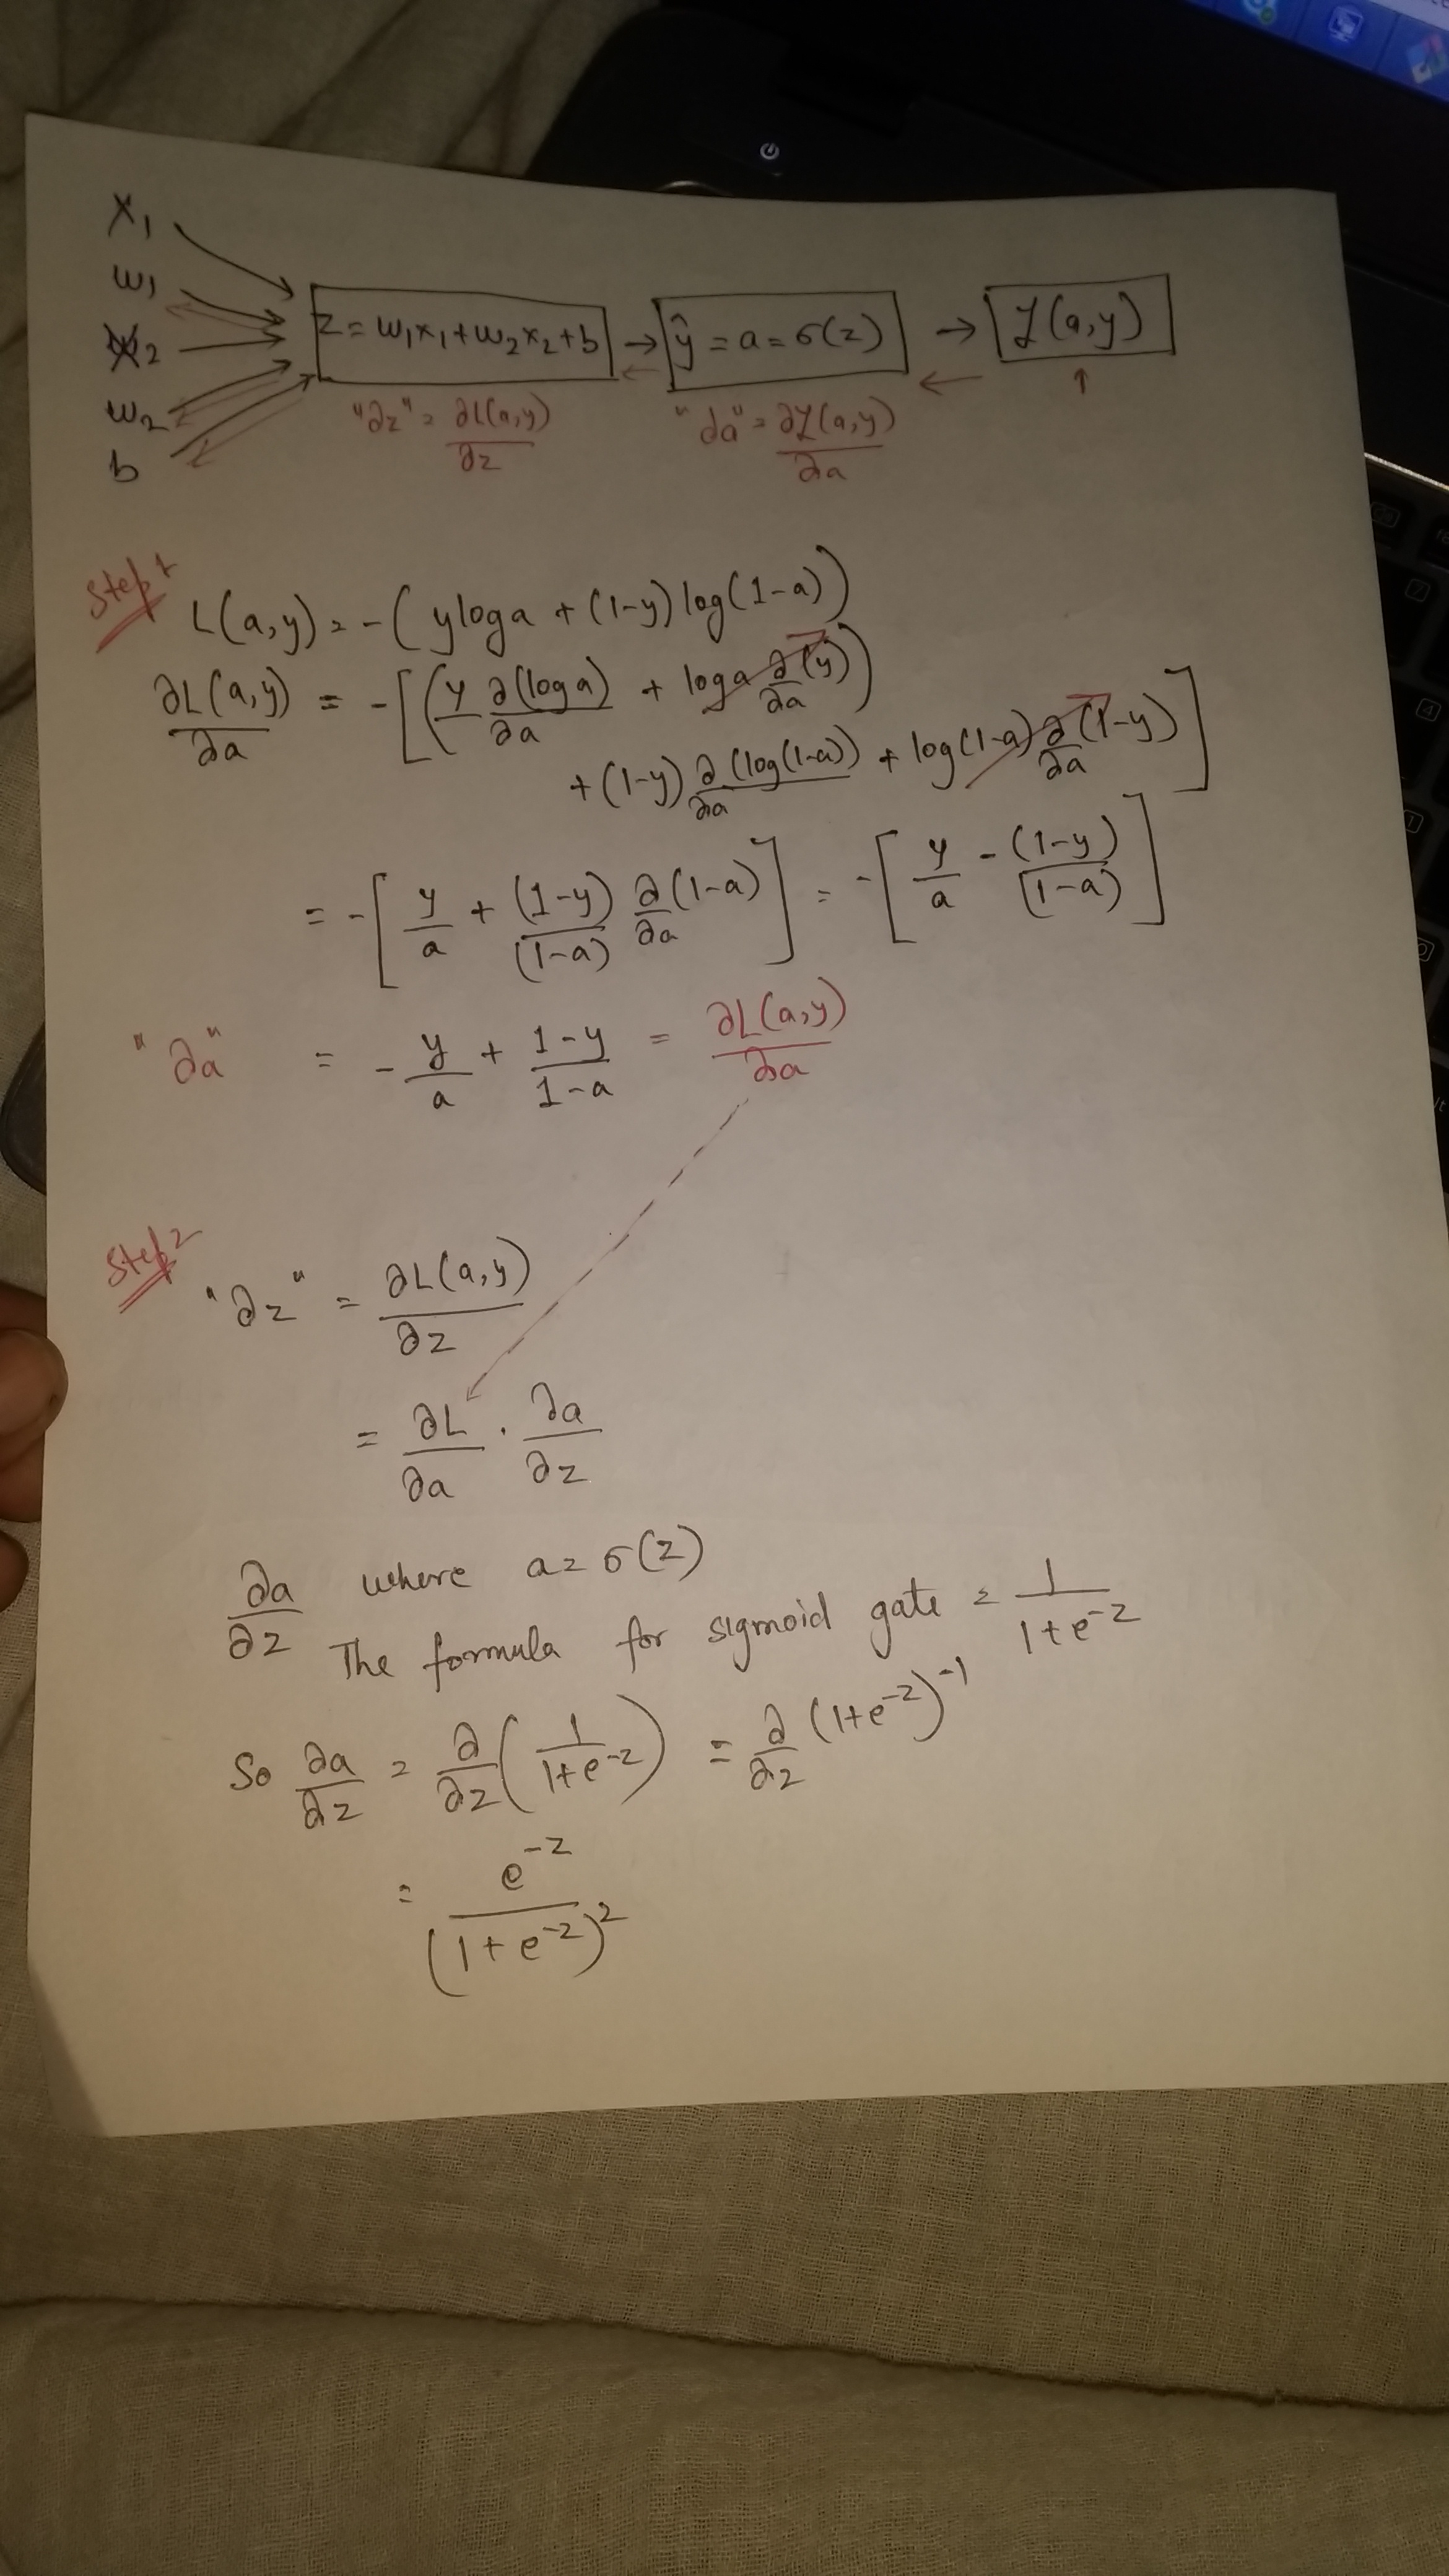 x₁
w₁
x₂
w₂
b
z = w₁x₁+w₂x₂+b → ŷ = a = σ(z) → ℒ(a,y)
"∂z" = ∂L(a,y)/∂z
"da" = ∂ℒ(a,y)/∂a
Step 1
L(a,y) = -(yloga + (1-y)log(1-a))
∂L(a,y)/∂a = -[(y ∂(loga)/∂a + loga ∂/∂a(y))
+(1-y) ∂/∂a(log(1-a)) + log(1-a) ∂/∂a(1-y)]
= -[y/a + (1-y)/(1-a) ∂/∂a(1-a)] = -[y/a - (1-y)/(1-a)]
"∂a" = -y/a + 1-y/1-a = ∂L(a,y)/∂a
Step 2
"∂z" = ∂L(a,y)/∂z
= ∂L/∂a · ∂a/∂z
∂a/∂z where a = σ(z)
The formula for sigmoid gate = 1/1+e⁻ᶻ
So ∂a/∂z = ∂/∂z(1/1+e⁻ᶻ) = ∂/∂z(1+e⁻ᶻ)⁻¹
= e⁻ᶻ/(1+e⁻ᶻ)²